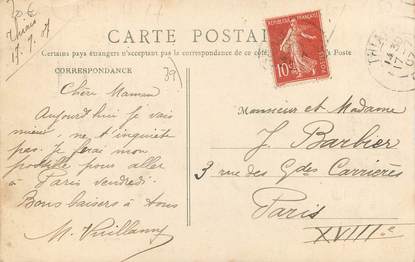 30 €
Thiais
17.7.07
CARTE POSTALE
Certains pays étrangers n'acceptant pas la correspondance de ce côté, la Poste
CORRESPONDANCE
39
Chère Maman
Aujourd'hui je vais
mieux, ne t'inquiète
pas. Je ferai mon
possible pour aller
à Paris vendredi.
Bons baisers à tous
M. Vuillanny
REPUBLIQUE FRANÇAISE
10
THIA
17
07
Monsieur et Madame
J. Barbier
3 rue des Gdes Carrières
Paris
XVIIIe